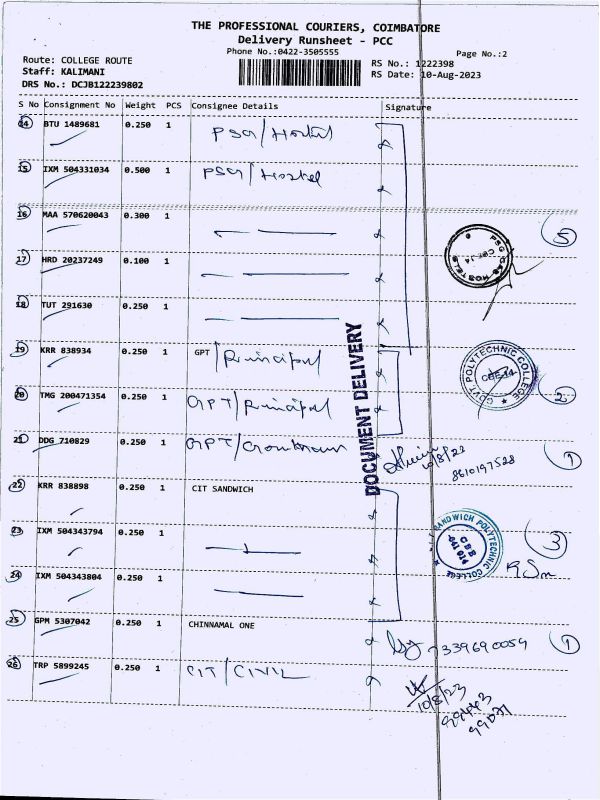 THE PROFESSIONAL COURIERS, COIMBATORE
Delivery Runsheet - PCC
Phone No.:0422-3505555
Page No.:2
Route: COLLEGE ROUTE
RS No.: 1222398
Staff: KALIMANI
RS Date: 10-Aug-2023
DRS No.: DCJB122239802
S No Consignment No Weight PCS Consignee Details Signature
14 BTU 1489681 0.250 1 PSG/Hostel
15 IXM 504331034 0.500 1 PSG/Hostel
16 MAA 570620043 0.300 1
5
17 HRD 20237249 0.100 1
18 TUT 291630 0.250 1
19 KRR 838934 0.250 1 GPT/Principal
GOVT POLYTECHNIC COLLEGE
CBE-14
20 TMG 200471354 0.250 1 GPT/Principal
2
DOCUMENT DELIVERY
21 DDG 710829 0.250 1 GPT/
10/8/23
8610197528
1
22 KRR 838898 0.250 1 CIT SANDWICH
23 IXM 504343794 0.250 1
SANDWICH POLYTECHNIC COLLEGE
CBE
641 014
3
24 IXM 504343804 0.250 1
25 GPM 5307042 0.250 1 CHINNAMAL ONE
1
26 TRP 5899245 0.250 1 CIT/CIVIL
10/8/23
99443